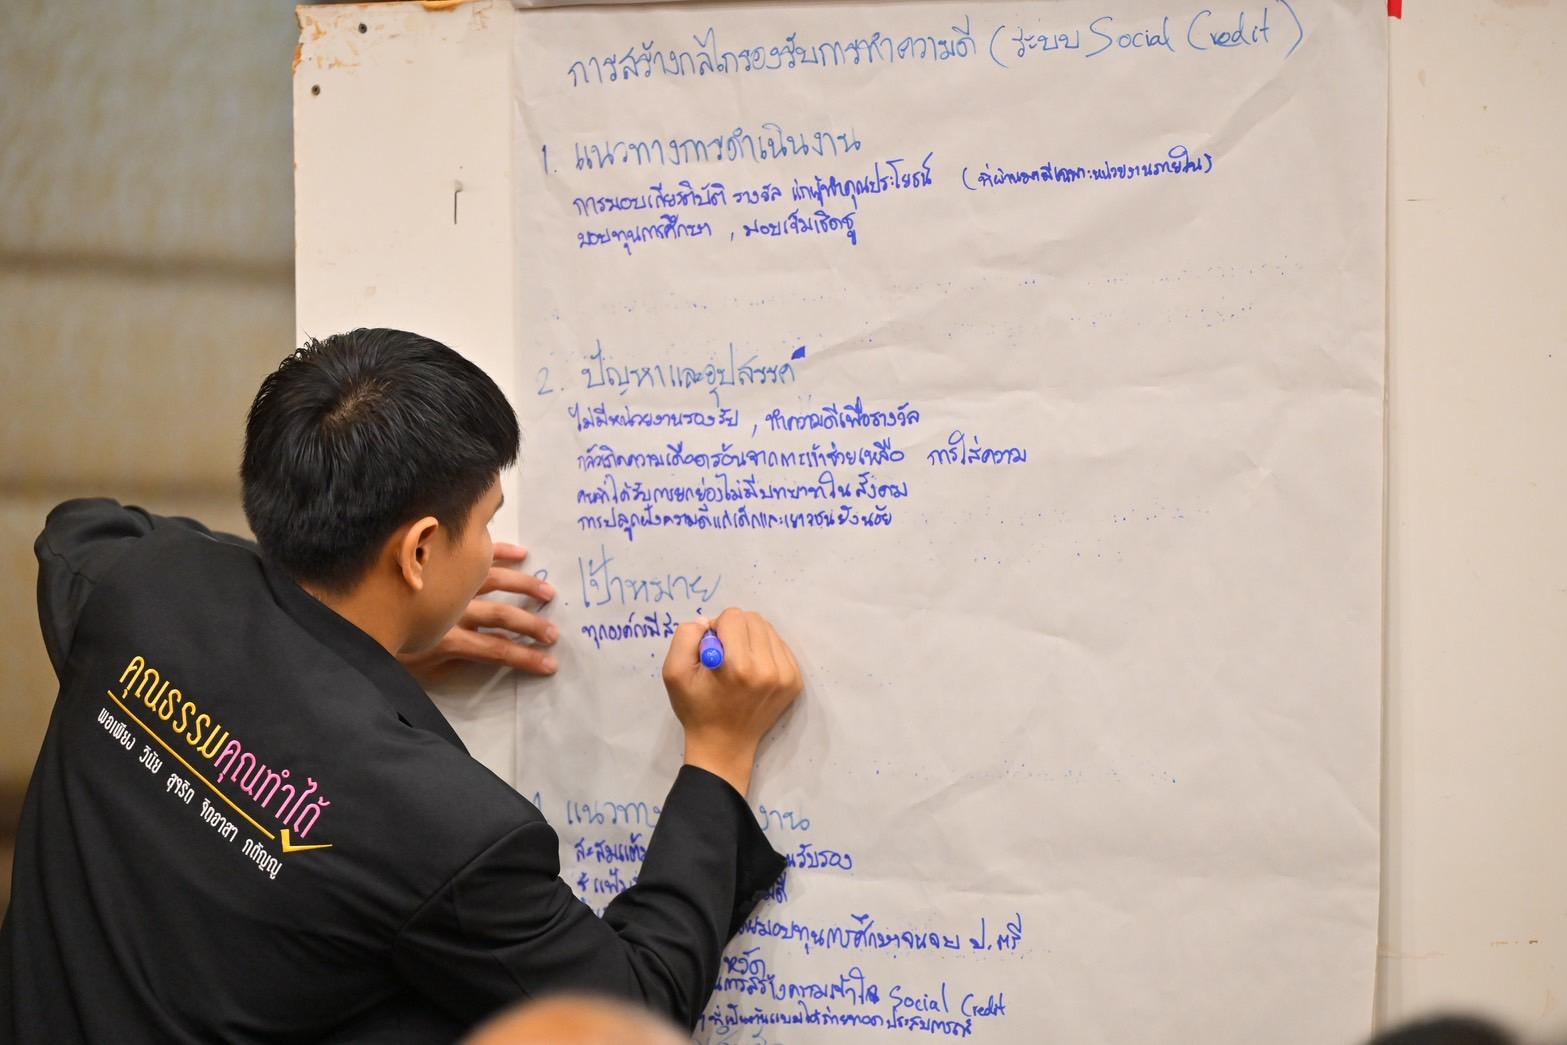 การสร้างกลไกรองรับการทำความดี (ระบบ Social Credit)
1. แนวทางการดำเนินงาน
การมอบเกียรติบัติ รางวัล แก่ผู้ทำคุณประโยชน์ (ที่ผ่านมามีเฉพาะหน่วยงานภายใน)
มอบทุนการศึกษา , มอบเข็มเชิดชู
2. ปัญหาและอุปสรรค
ไม่มีหน่วยงานรองรับ , ทำความดีเพื่อรางวัล
กลัวเกิดความเดือดร้อนจากการเข้าช่วยเหลือ การใส่ความ
คนที่ได้รับการยกย่องไม่มีบทบาทในสังคม
การปลูกฝังความดีแก่เด็กและเยาวชนยังน้อย
เป้าหมาย
ทุกองค์กรมีส่วน
แนวทาง งาน
สะสมแต้ม รับรอง
มอบทุนการศึกษาจนจบ ป.ตรี
การสร้างความเข้าใจ Social Credit
ที่เป็นต้นแบบได้ถ่ายทอดประสบการณ์
คุณธรรมคุณทำได้
พอเพียง วินัย สุจริต จิตอาสา กตัญญู